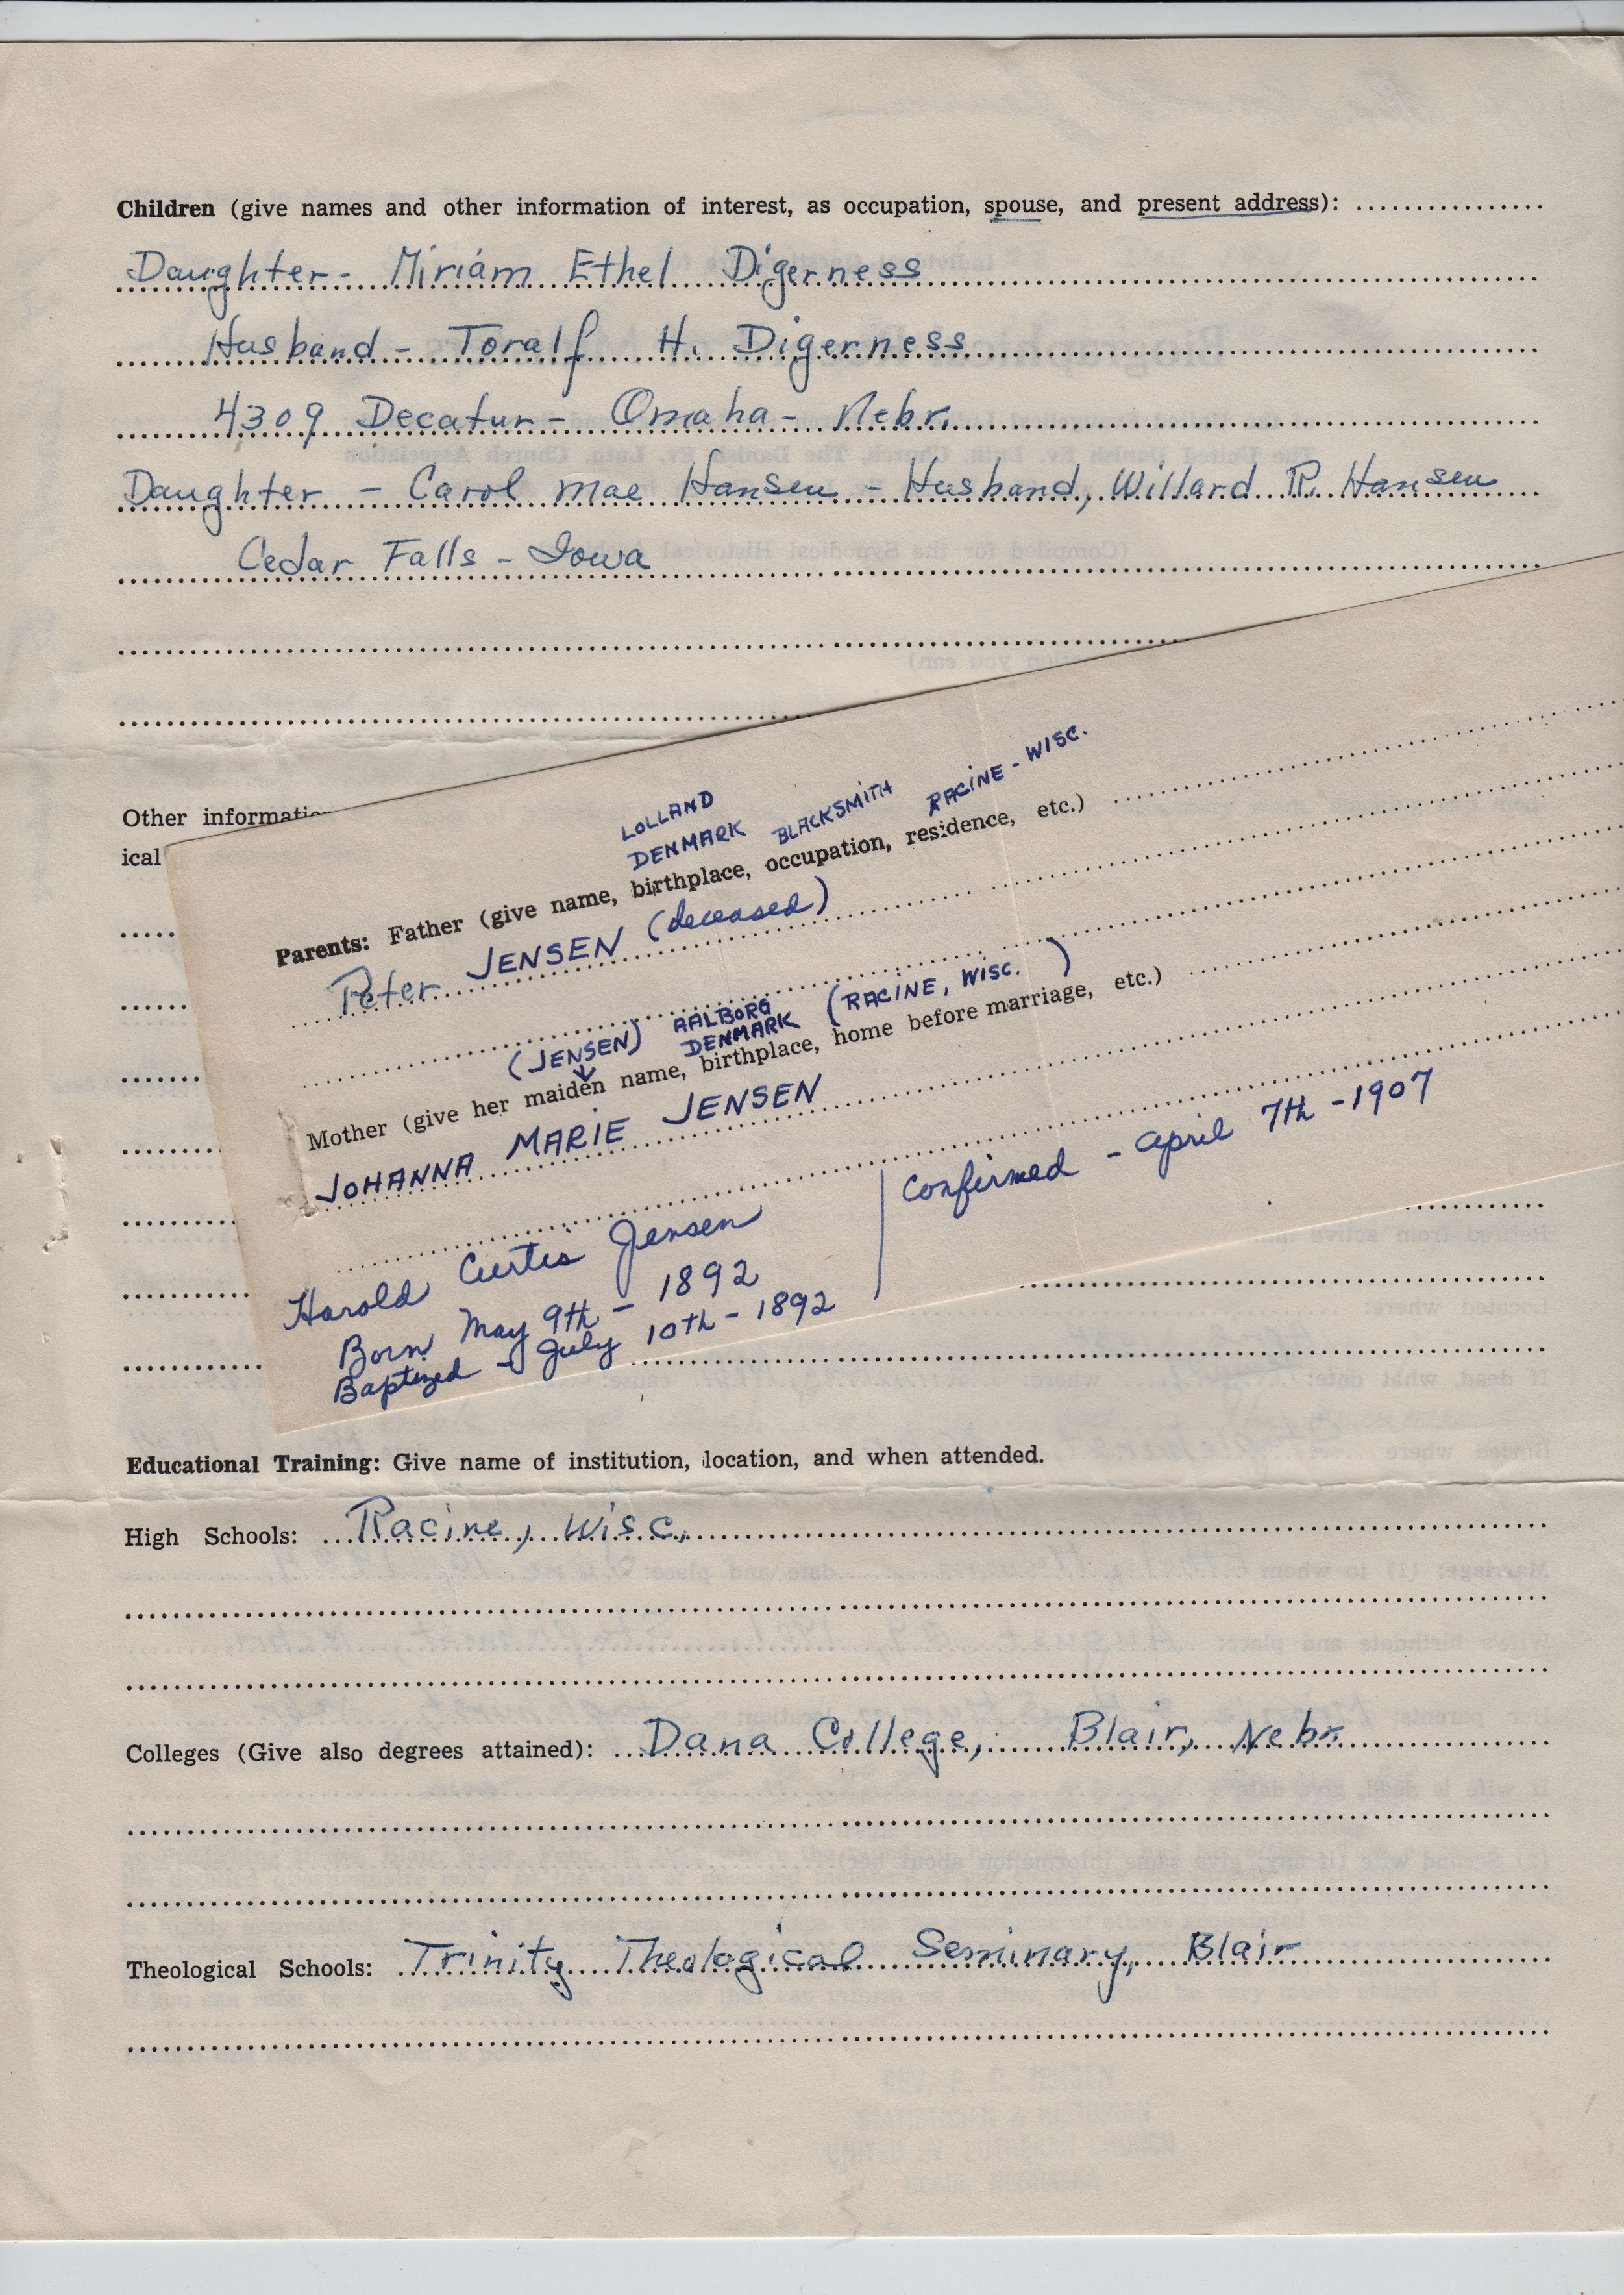 Children (give names and other information of interest, as occupation, spouse, and present address):
Daughter - Miriam Ethel Digerness
Husband - Toralf H. Digerness
4309 Decatur - Omaha - Nebr.
Daughter - Carol Mae Hansen - Husband, Willard R. Hansen
Cedar Falls - Iowa
Other information
ical
LOLLAND
DENMARK BLACKSMITH RACINE - WISC.
Parents: Father (give name, birthplace, occupation, residence, etc.)
Peter JENSEN (deceased)
(JENSEN) AALBORG DENMARK (RACINE, WISC.)
Mother (give her maiden name, birthplace, home before marriage, etc.)
JOHANNA MARIE JENSEN
Harold Curtis Jensen
Born May 9th - 1892
Baptized - July 10th - 1892
Confirmed - April 7th - 1907
Educational Training: Give name of institution, location, and when attended.
High Schools: Racine, Wisc.
Colleges (Give also degrees attained): Dana College, Blair, Nebr.
Theological Schools: Trinity Theological Seminary, Blair